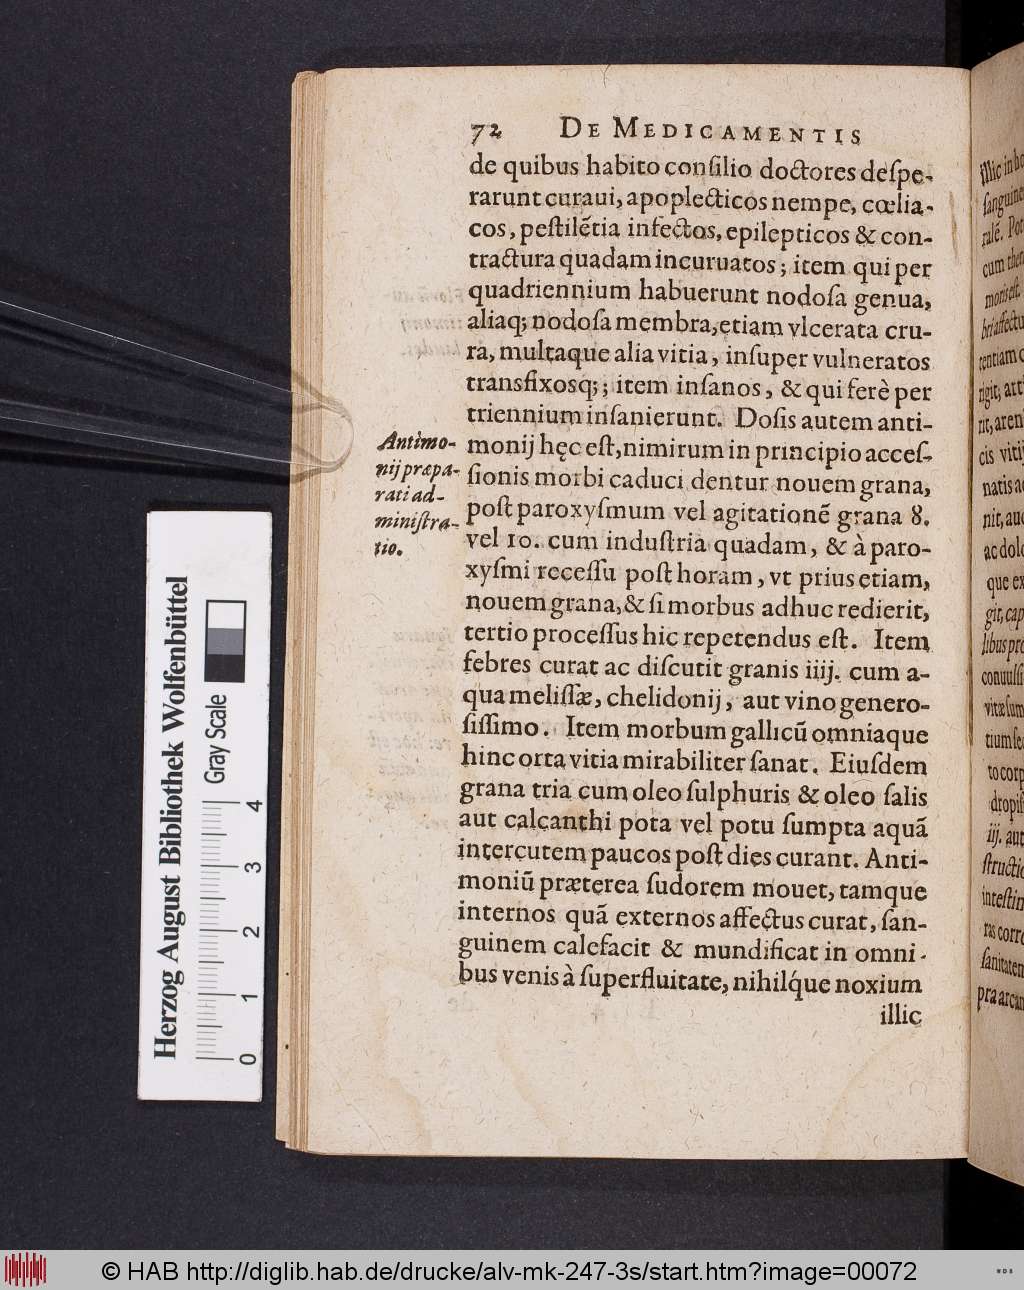 72 DE MEDICAMENTIS
de quibus habito conſilio doctores deſpe-
rarunt curaui, apoplecticos nempe, cœlia-
cos, peſtilẽtia infectos, epilepticos & con-
tractura quadam incuruatos; item qui per
quadriennium habuerunt nodoſa genua,
aliaq; nodoſa membra, etiam vlcerata cru-
ra, multaque alia vitia, inſuper vulneratos
transfixosq;; item inſanos, & qui ferè per
triennium inſanierunt. Doſis autem anti-
monij hęc eſt, nimirum in principio acceſ-
ſionis morbi caduci dentur nouem grana,
poſt paroxyſmum vel agitationẽ grana 8.
vel 10. cum induſtria quadam, & à paro-
xyſmi receſſu poſt horam, vt prius etiam,
nouem grana, & ſi morbus adhuc redierit,
tertio proceſſus hic repetendus eſt. Item
febres curat ac diſcutit granis iiij. cum a-
qua meliſſæ, chelidonij, aut vino genero-
ſiſſimo. Item morbum gallicũ omniaque
hinc orta vitia mirabiliter ſanat. Eiuſdem
grana tria cum oleo ſulphuris & oleo ſalis
aut calcanthi pota vel potu ſumpta aquã
intercutem paucos poſt dies curant. Anti-
moniũ præterea ſudorem mouet, tamque
internos quã externos affectus curat, ſan-
guinem calefacit & mundificat in omni-
bus venis à ſuperfluitate, nihilq́ue noxium
illic
Antimo-
nij præpa-
rati ad-
miniſtra-
tio.
illic in
ſanguine
ralẽ.
cum
moris eſt.
bri affectu
rigit; arti
rit, aren
cis
natis
nit,
ac dolo
que ex
git, cap
libus
conuulſi
vitæ ſum
tium
to corp
dropiſ
iij. aut
ſtructio
inteſtin
ras corro
ſanitatem
pra arcan
Herzog August Bibliothek Wolfenbüttel
Gray Scale
0 1 2 3 4
© HAB http://diglib.hab.de/drucke/alv-mk-247-3s/start.htm?image=00072